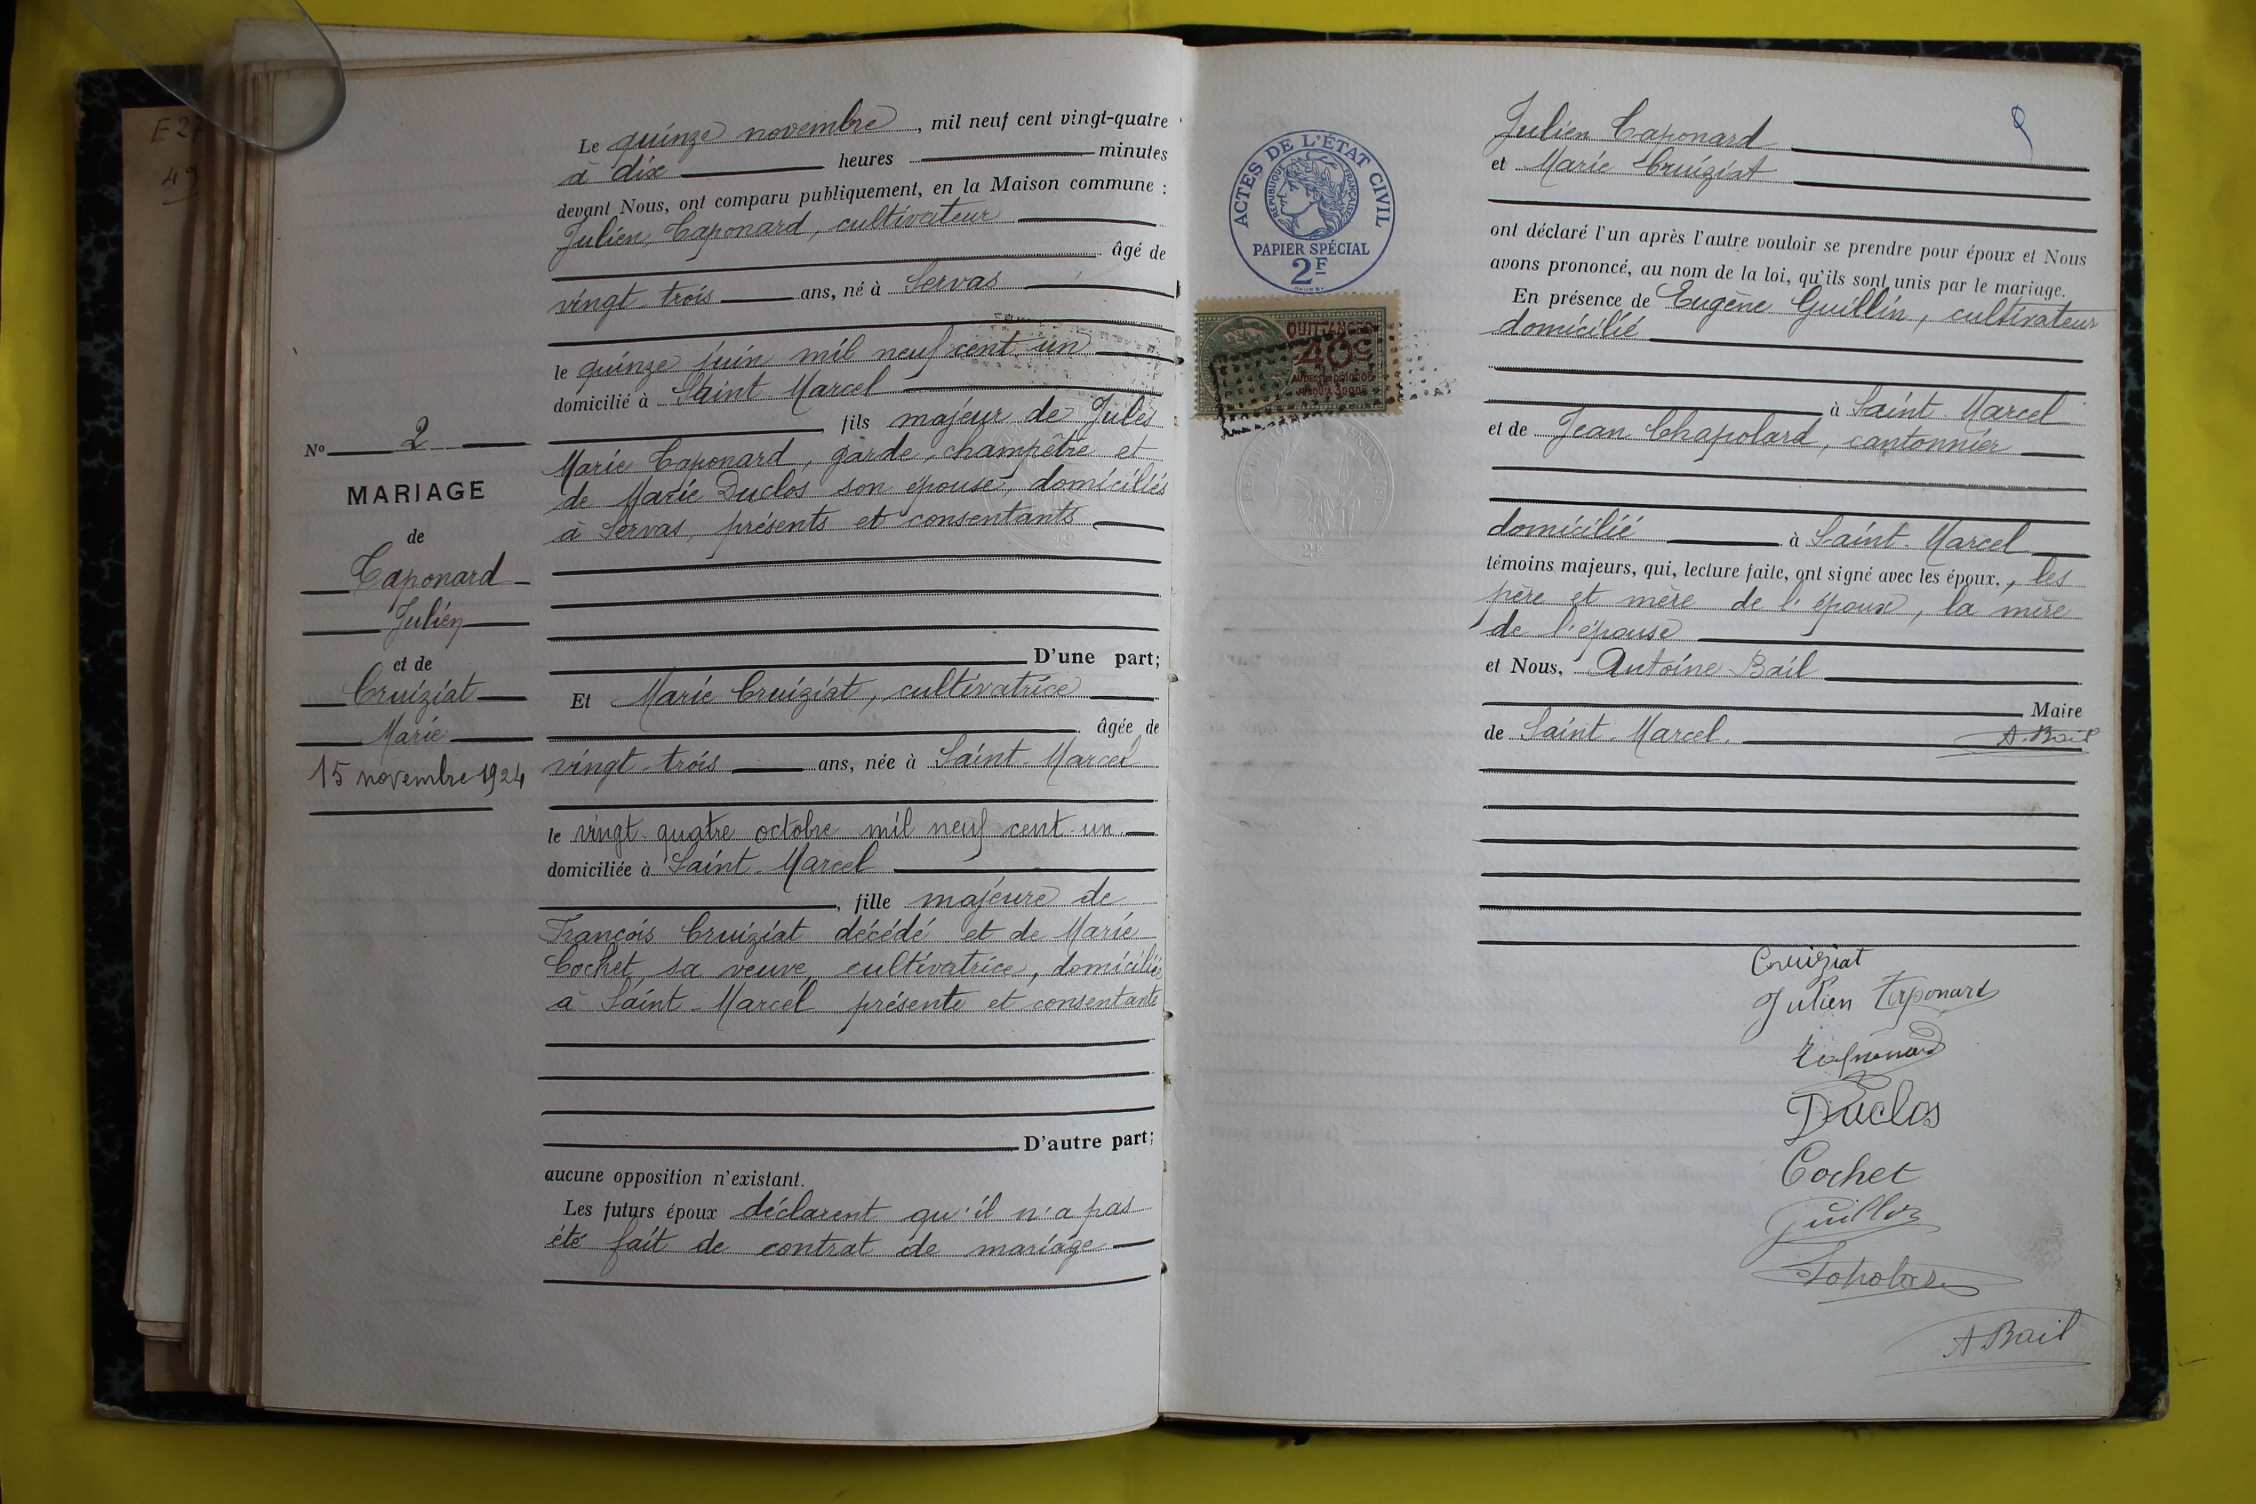 E 2
49
Le quinze novembre, mil neuf cent vingt-quatre
à dix heures minutes
devant Nous, ont comparu publiquement, en la Maison commune :
Julien Taponard, cultivateur
âgé de
vingt-trois ans, né à Servas
le quinze juin mil neuf cent un
domicilié à Saint Marcel
fils majeur de Jules
Marie Taponard, garde-champêtre et
de Marie Duclos son épouse, domiciliés
à Servas, présents et consentants
D'une part;
Et Marie Cruiziat, cultivatrice
âgée de
vingt-trois ans, née à Saint-Marcel
le vingt-quatre octobre mil neuf cent un
domiciliée à Saint-Marcel
, fille majeure de
François Cruiziat décédé et de Marie
Cochet, sa veuve, cultivatrice, domiciliée
à Saint-Marcel présente et consentante
D'autre part;
aucune opposition n'existant.
Les futurs époux déclarent qu'il n'a pas
été fait de contrat de mariage
No 2
MARIAGE
de
Taponard
Julien
et de
Cruiziat
Marie
15 novembre 1924
ACTES DE L'ÉTAT CIVIL
RÉPUBLIQUE FRANÇAISE
PAPIER SPÉCIAL
2F
QUITTANCES
40c
2F
Julien Taponard
et Marie Cruiziat
ont déclaré l'un après l'autre vouloir se prendre pour époux et Nous
avons prononcé, au nom de la loi, qu'ils sont unis par le mariage.
En présence de Eugène Guillin, cultivateur
domicilié
à Saint-Marcel
et de Jean Chapolard, cantonnier
domicilié à Saint-Marcel
témoins majeurs, qui, lecture faite, ont signé avec les époux., les
père et mère de l'époux, la mère
de l'épouse
et Nous, Antoine Bail
Maire
de Saint-Marcel. A. Bail
Cruiziat
Julien Taponard
Taponard
Duclos
Cochet
A Bail